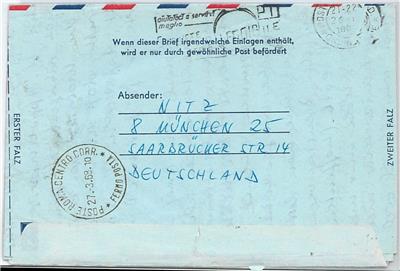 aiutateci a servirvi
meglio
Wenn dieser Brief irgendwelche Einlagen enthält,
wird er nur durch gewöhnliche Post befördert
Absender:
NITZ
8 MÜNCHEN 25
SAARBRÜCKER STR 14
DEUTSCHLAND
ERSTER FALZ
ZWEITER FALZ
POSTE ROMA CENTRO CORR.
27.3.68.10
FERMO POSTA
21-22